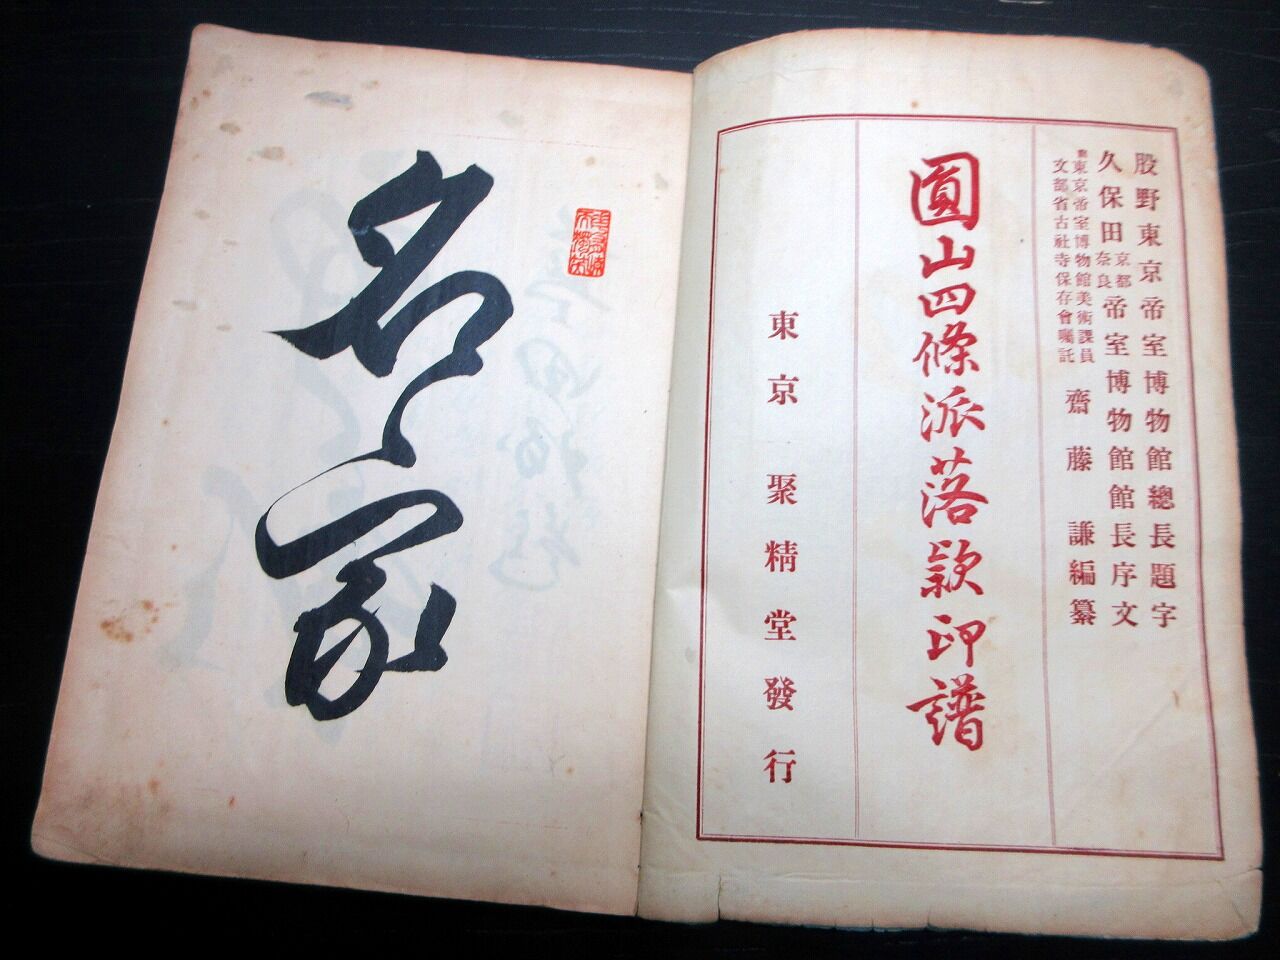 股野東京帝室博物館總長題字
久保田京都奈良帝室博物館館長序文
東京帝室博物館美術課員
文部省古社寺保存會囑託
齋藤謙編纂
圓山四條派落款印譜
東京聚精堂發行
名家